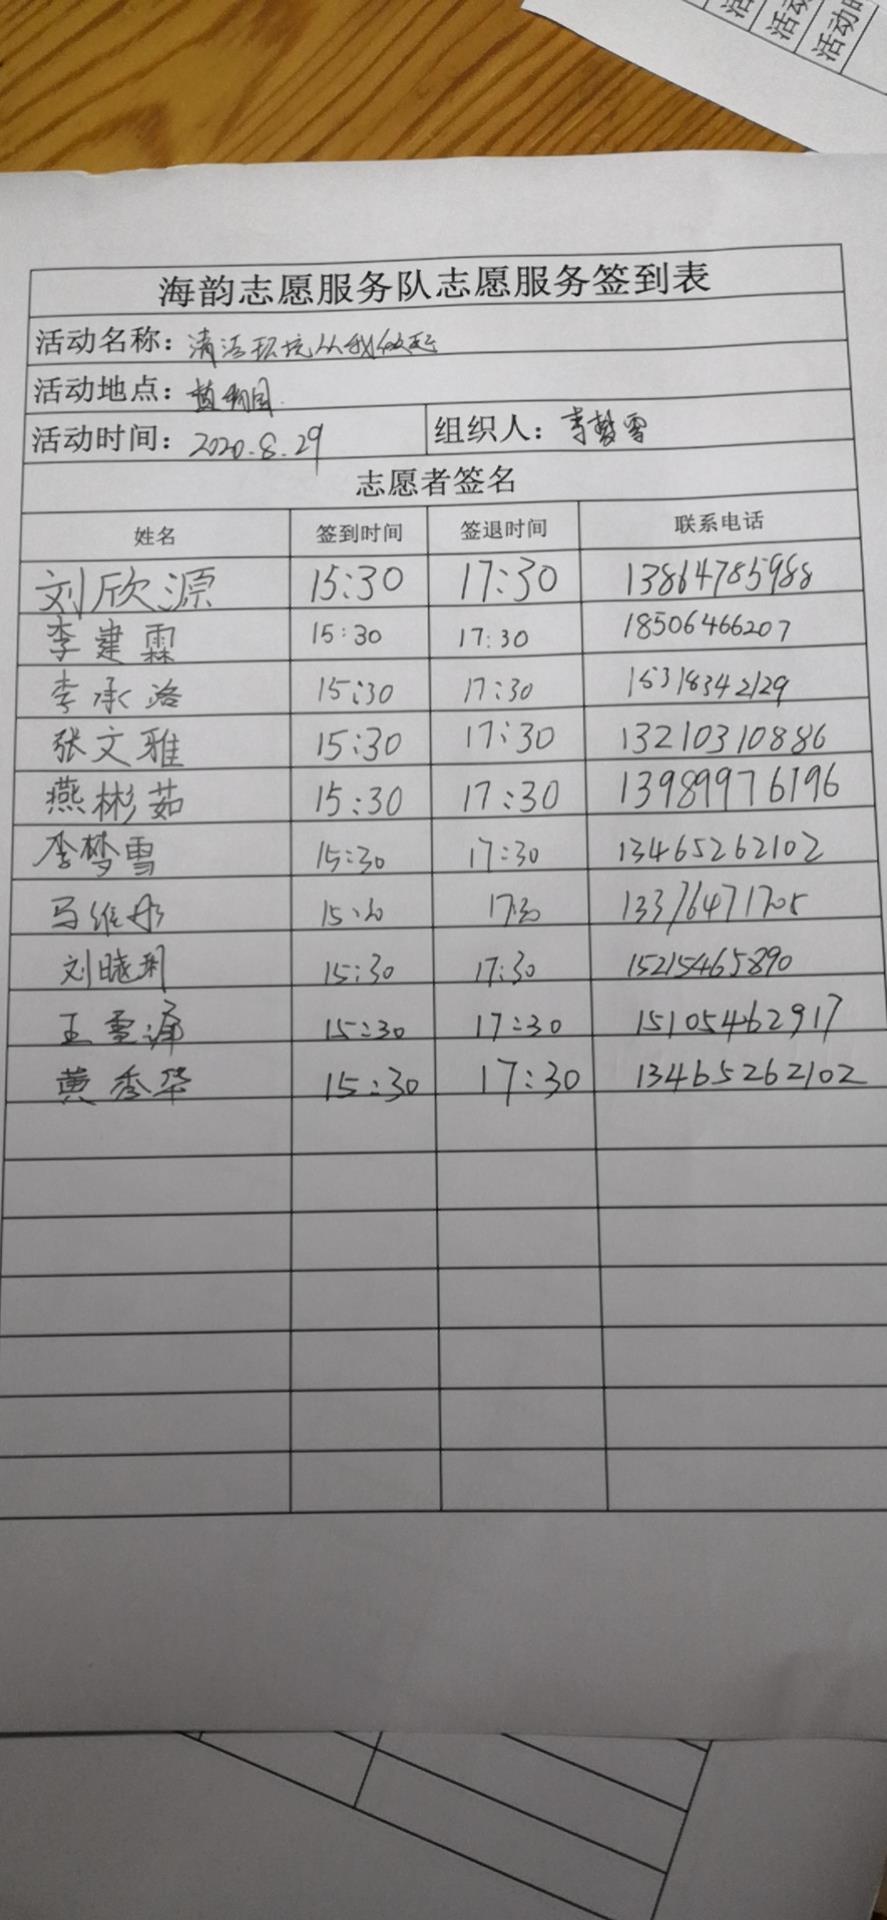 活动
活动
活动时
海韵志愿服务队志愿服务签到表
活动名称：清洁环境从我做起
活动地点：
活动时间：2020.8.29 组织人：李梦雪
志愿者签名
姓名 签到时间 签退时间 联系电话
刘欣源 15:30 17:30 13864785988
李建霖 15:30 17:30 18506466207
李承洛 15:30 17:30 15318342129
张文雅 15:30 17:30 13210310886
燕彬茹 15:30 17:30 13989976196
李梦雪 15:30 17:30 13465262102
马维彤 15:30 17:30 13376471705
刘晓 15:30 17:30 15215465890
王雪 15:30 17:30 15105462917
黄秀华 15:30 17:30 13465262102